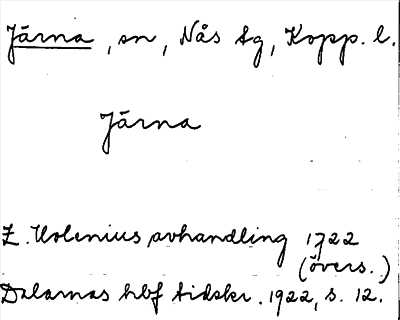 Järna, sn, Nås tg, Kopp. l.
Järna
E. Holenius avhandling 1722
(övers.)
Dalarnas hbf tidskr. 1922, s. 12.